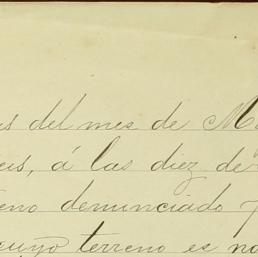 del mes de
eis, á las diez de
eno denunciado
cuyo terreno es no